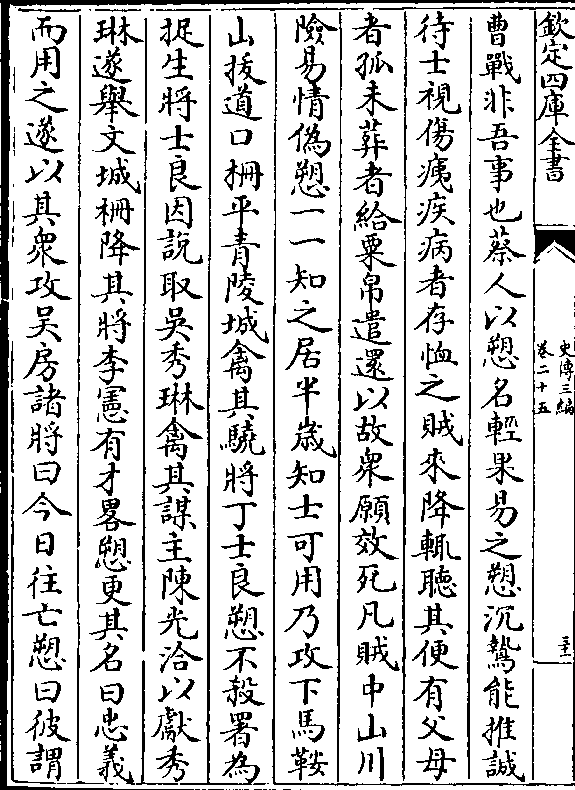 欽定四庫全書
史傳三編
卷二十五
三十二
曹戰非吾事也蔡人以愬名輕果易之愬沉鷙能推誠
待士視傷痍疾病者存恤之賊來降輒聽其便有父母
者孤未葬者給粟帛遣還以故衆願效死凡賊中山川
險易情偽愬一一知之居半嵗知士可用乃攻下馬鞍
山拔道口柵平青陵城禽其驍將丁士良愬不殺署為
捉生將士良因説取吳秀琳禽其謀主陳光洽以獻秀
琳遂舉文城柵降其將李憲有才畧愬更其名曰忠義
而用之遂以其衆攻吳房諸將曰今日往亡愬曰彼謂